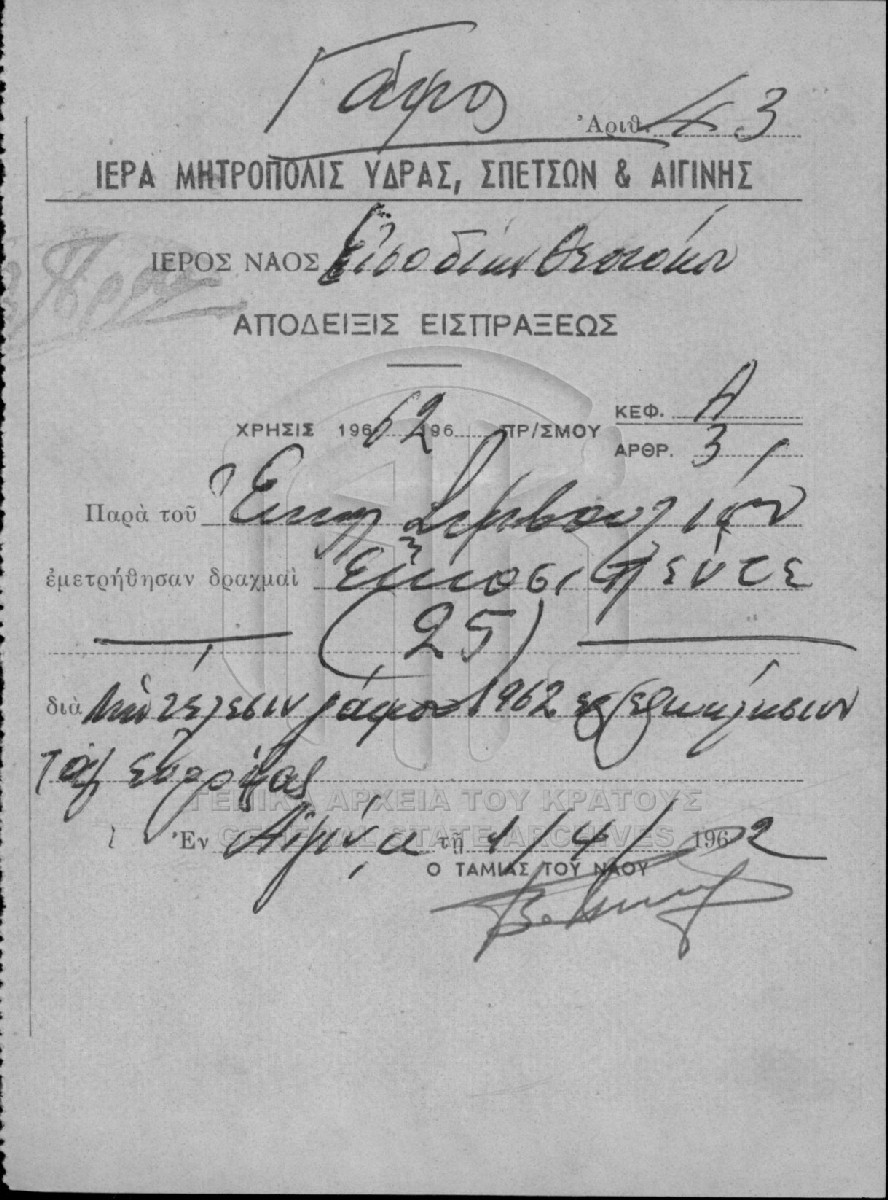 Γάμος
Ἀριθ. 43
ΙΕΡΑ ΜΗΤΡΟΠΟΛΙΣ ΥΔΡΑΣ, ΣΠΕΤΣΩΝ & ΑΙΓΙΝΗΣ
ΙΕΡΟΣ ΝΑΟΣ Εἰσοδίων Θεοτόκου
ΑΠΟΔΕΙΞΙΣ ΕΙΣΠΡΑΞΕΩΣ
ΧΡΗΣΙΣ 196 62 196 ΠΡ/ΣΜΟΥ ΚΕΦ. Α
ΑΡΘΡ. 3
Παρὰ τοῦ Ἐκκλ Συμβουλίου
ἐμετρήθησαν δραχμαὶ Εἴκοσι πέντε
(25)
διὰ τέλεσιν γάμου 1962
ΓΕΝΙΚΑ ΑΡΧΕΙΑ ΤΟΥ ΚΡΑΤΟΥΣ
GENERAL STATE ARCHIVES
Ἐν Αἰγίνῃ τῇ 1/4/ 1962
Ο ΤΑΜΙΑΣ ΤΟΥ ΝΑΟΥ